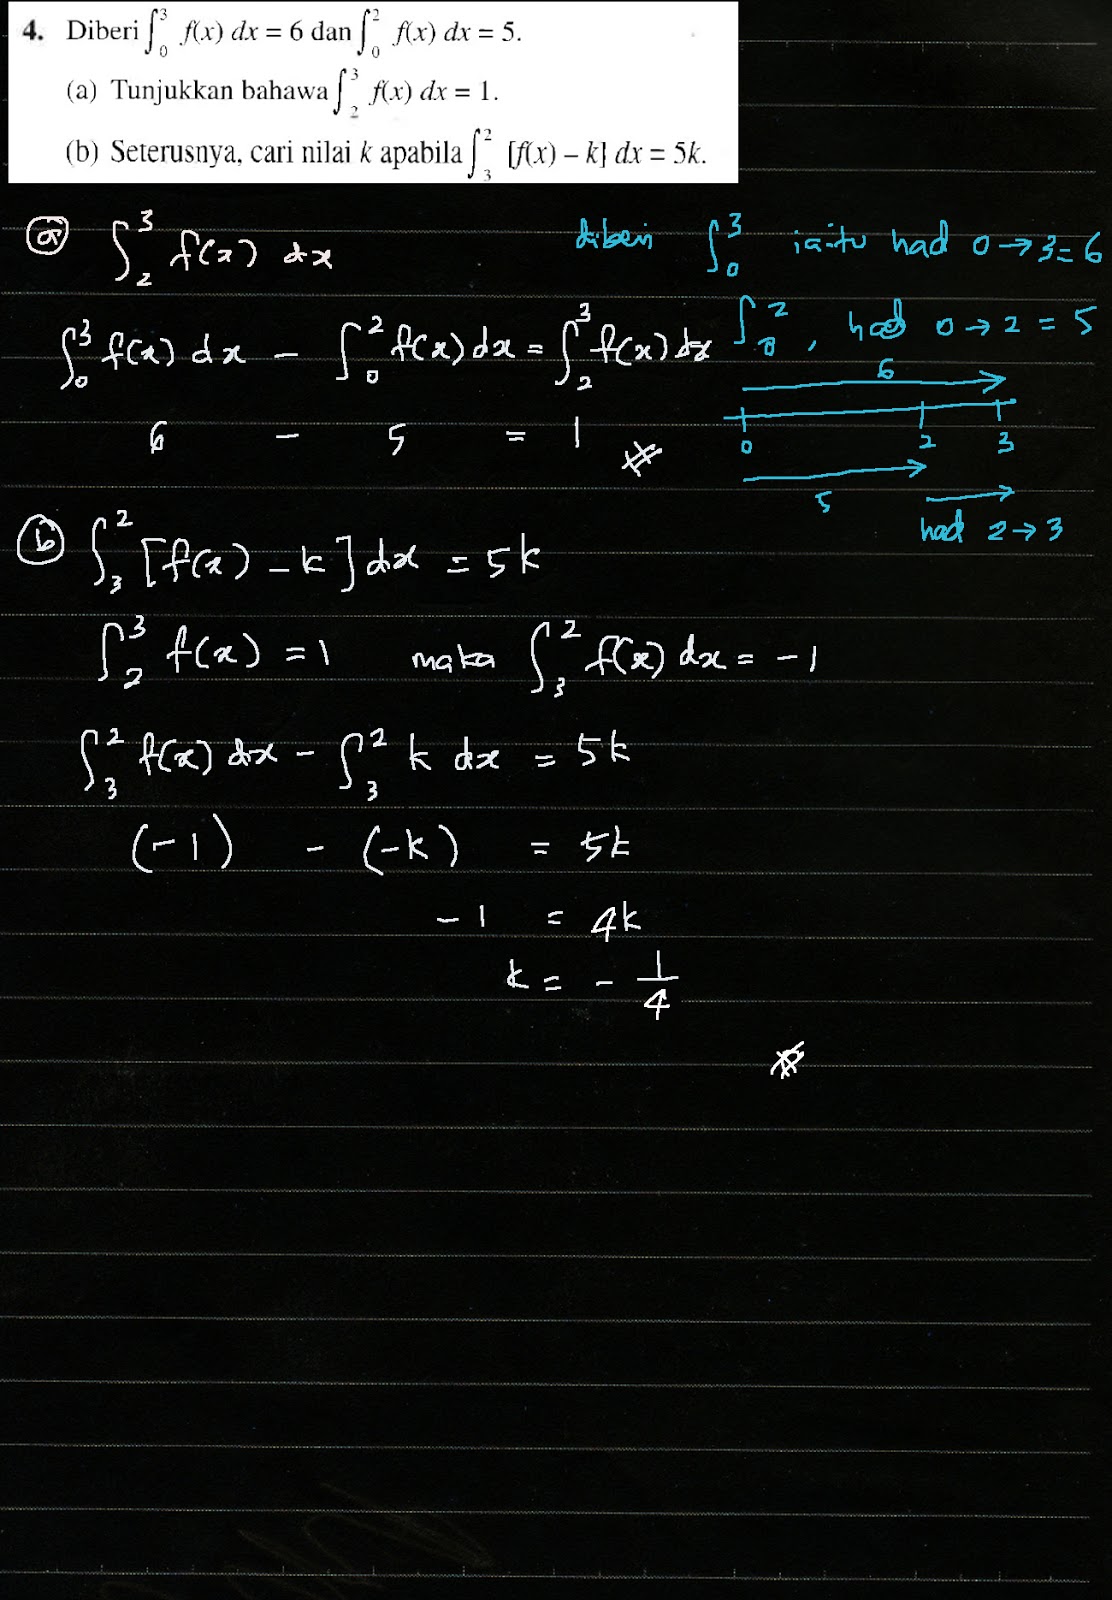 4. Diberi ∫₀³ f(x) dx = 6 dan ∫₀² f(x) dx = 5.
(a) Tunjukkan bahawa ∫₂³ f(x) dx = 1.
(b) Seterusnya, cari nilai k apabila ∫₃² [f(x) – k] dx = 5k.
(a) ∫₂³ f(x) dx
diberi ∫₀³ iaitu had 0 → 3 = 6
∫₀³ f(x) dx - ∫₀² f(x) dx = ∫₂³ f(x) dx
∫₀² , had 0 → 2 = 5
6 - 5 = 1
6
0 2 3
5
had 2 → 3
(b) ∫₃² [f(x) - k] dx = 5k
∫₂³ f(x) = 1 maka ∫₃² f(x) dx = -1
∫₃² f(x) dx - ∫₃² k dx = 5k
(-1) - (-k) = 5k
-1 = 4k
k = - 1/4